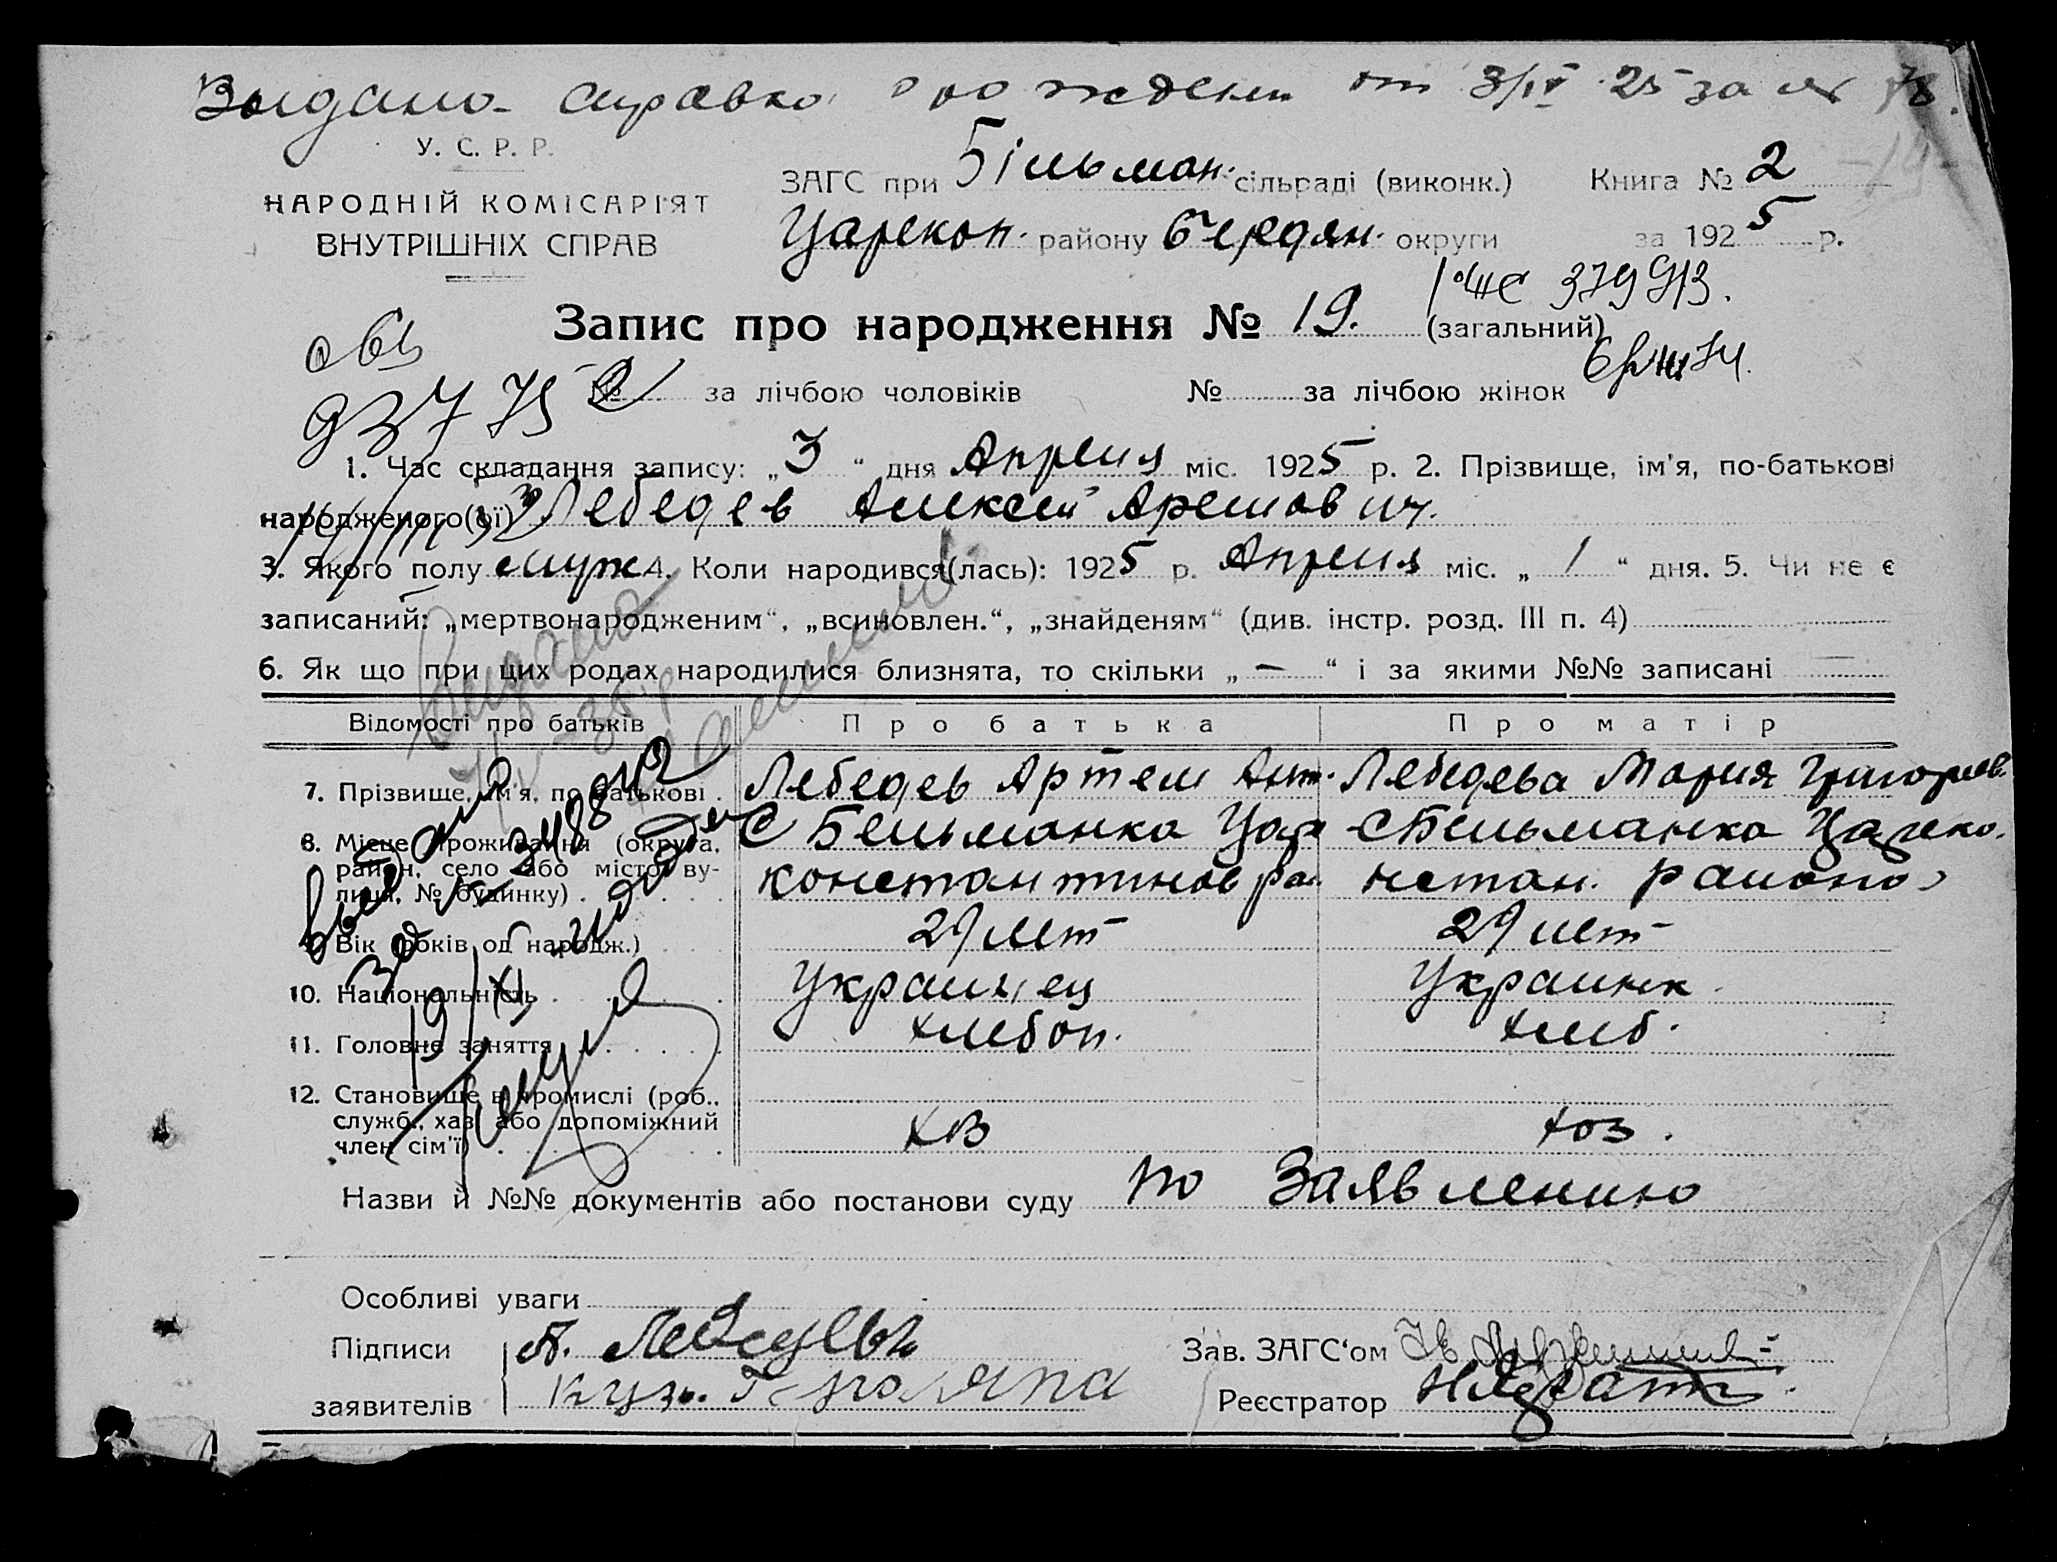 Выдана справка о рождении от 3/IV 25 за № 78.
У. С. Р. Р.
НАРОДНІЙ КОМІСАРІЯТ
ВНУТРІШНІХ СПРАВ
ЗАГС при Більман. сільраді (виконк.) Книга № 2
Царекон. району Бердян. округи за 1925 р.
Запис про народження № 19. (загальний)
№ за лічбою чоловіків № за лічбою жінок
1. Час складання запису: „3“ дня Апреля міс. 1925 р. 2. Прізвище, ім'я, по-батькові
народженого(ої) Лебедев Алексей Артемович.
3. Якого полу муж 4. Коли народився(лась): 1925 р. Апреля міс. „1“ дня. 5. Чи не є
записаний: „мертвонародженим“, „всиновлен.“, „знайденям“ (див. інстр. розд. III п. 4)
6. Як що при цих родах народилися близнята, то скільки „—“ і за якими №№ записані
Відомості про батьків Про батька Про матір
7. Прізвище, ім'я, по батькові Лебедев Артем Ант. Лебедева Мария Григориев.
8. Місце проживання (округа, С Бельманка Цар С Бельманка Цареко.
район, село або місто, ву-
лиця, № будинку) константинов ра нстан. района
9. Вік (років од народж.) 29 лет 29 лет
10. Національність Украинец Украинк
11. Головне заняття хлебоп. хлеб.
12. Становище в промислі (роб.,
служб., хаз. або допоміжний
член сім'ї) хоз хоз.
Назви й №№ документів або постанови суду по Заявлению
Особливі уваги
Підписи А. Лебедев Зав. ЗАГС‘ом
заявителів Реєстратор